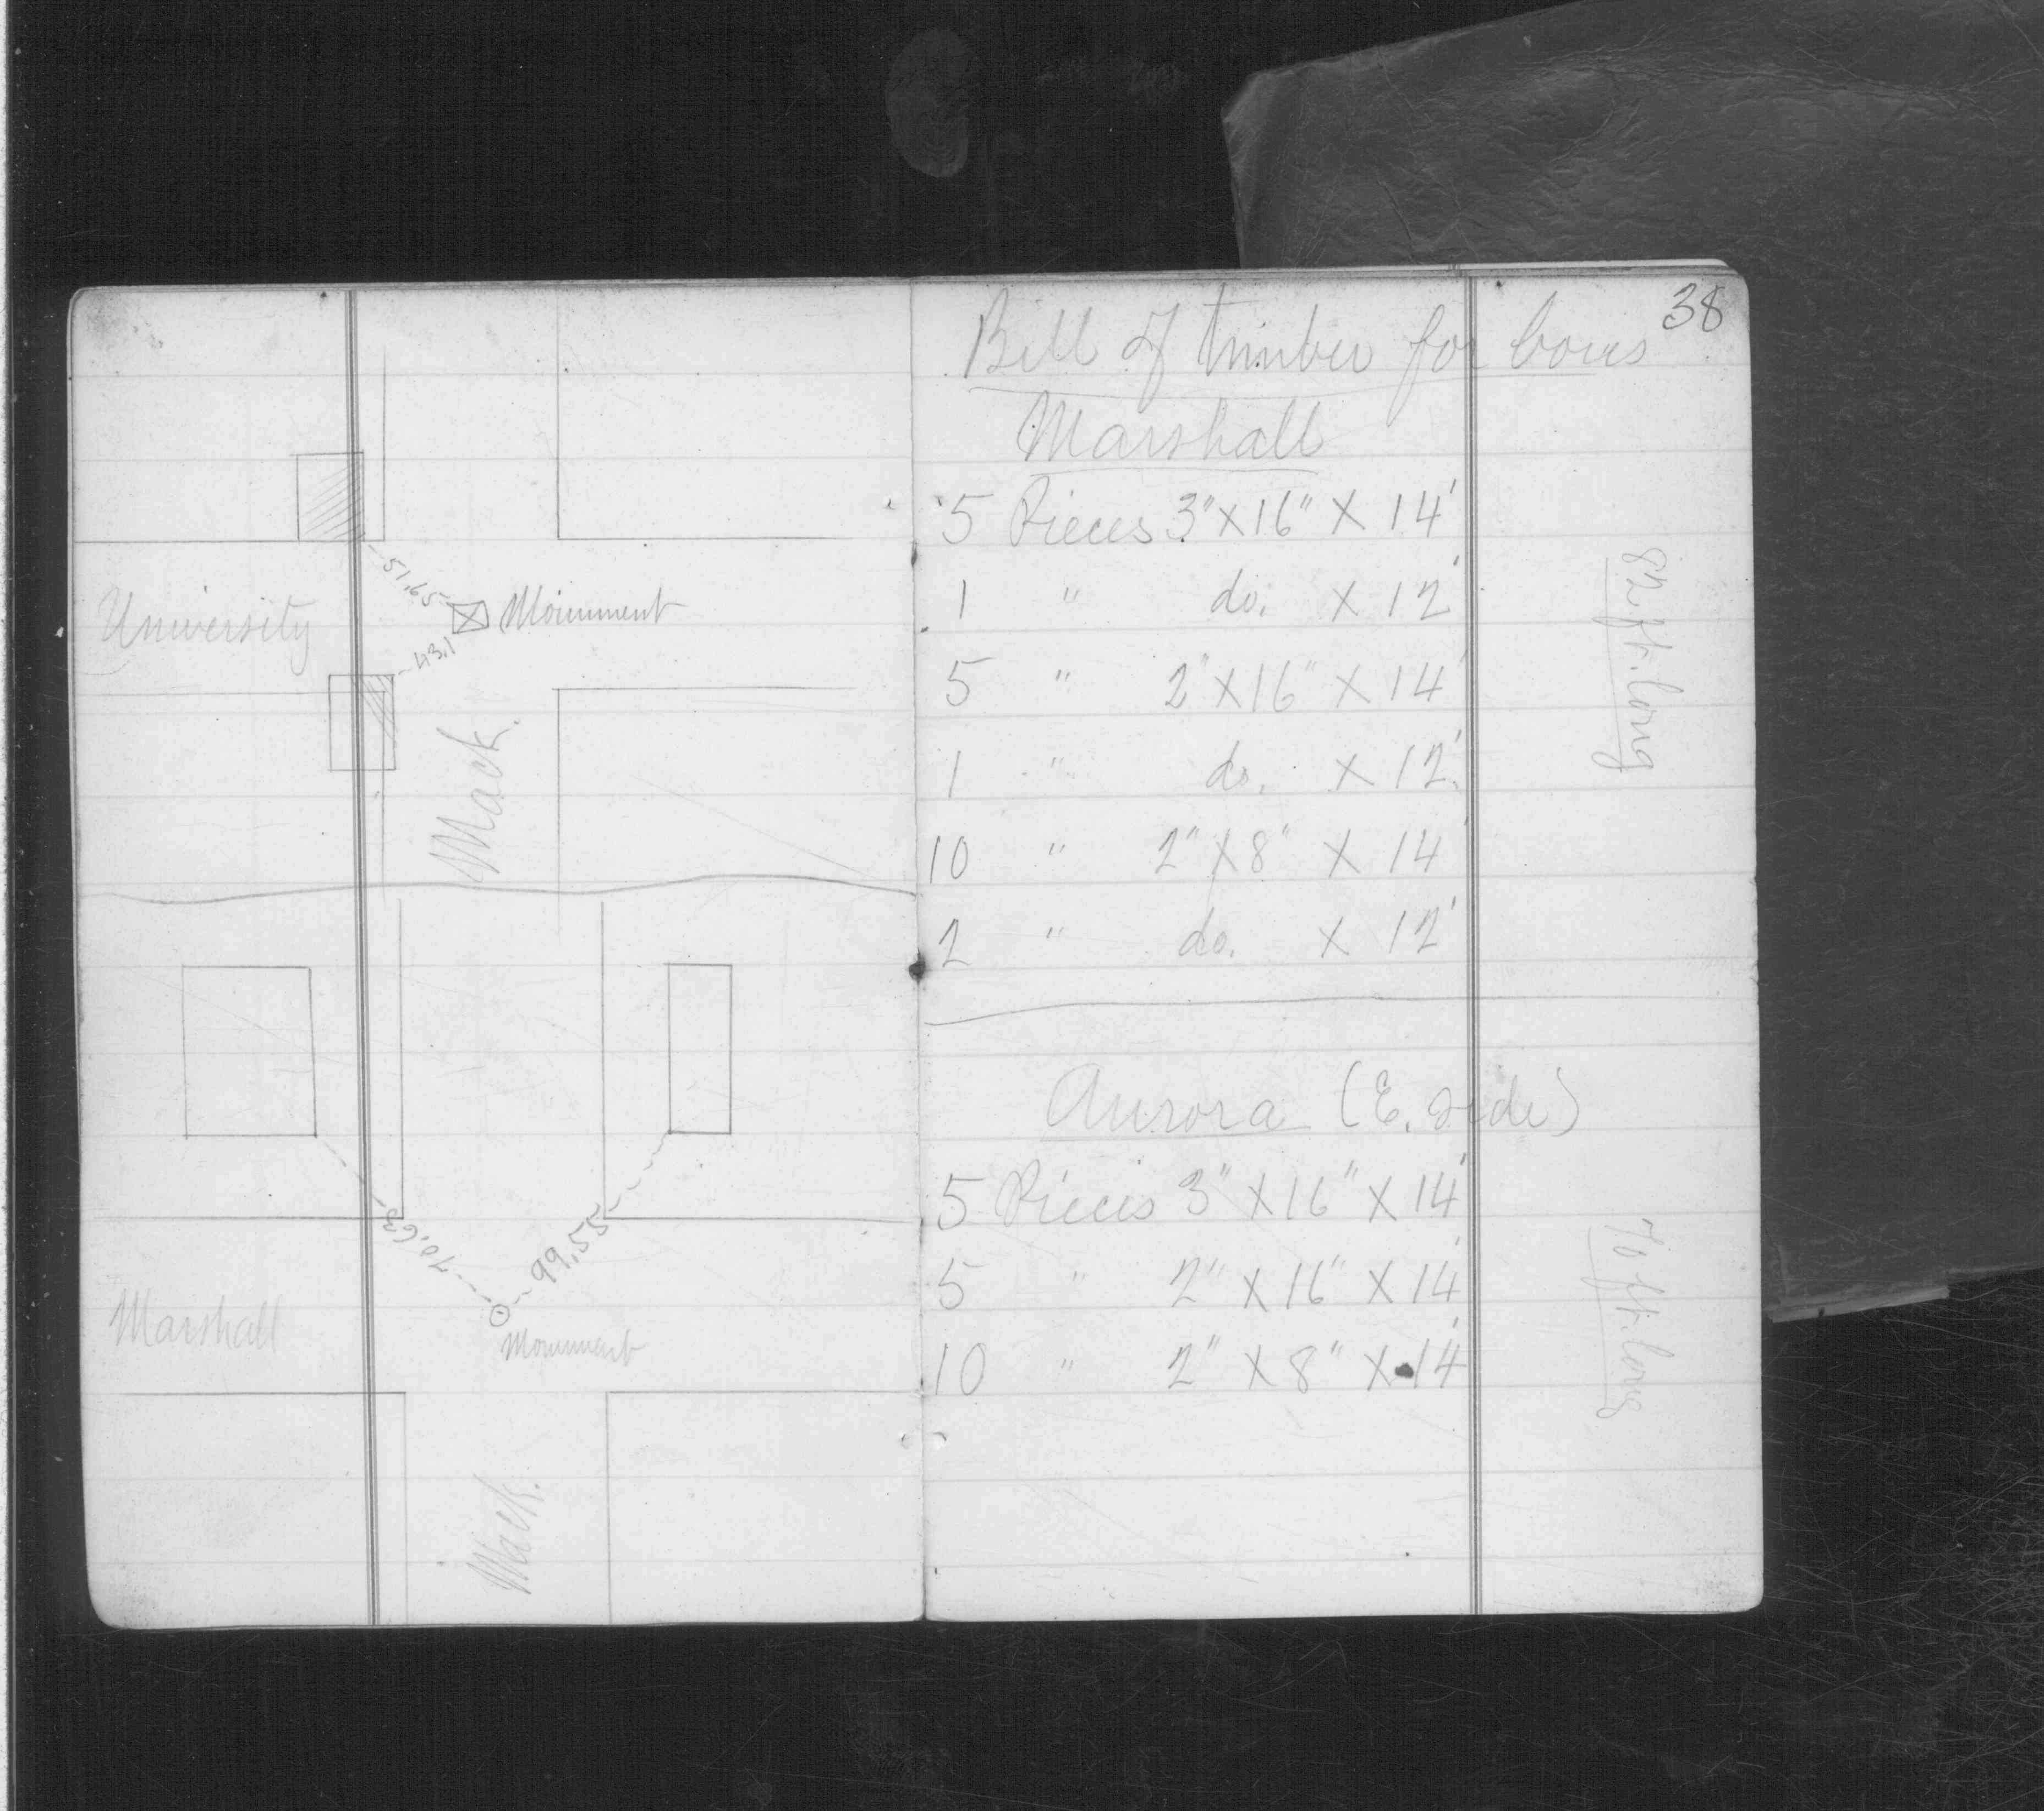 51,65
University
Monument
43,1
Mack.
70,63
99,55
Marshall
Monument
Mack.
38
Bill of timber for boxes
Marshall
5 Pieces 3" X 16" X 14'
1 " do. X 12'
5 " 2" X 16" X 14'
1 " do. X 12'
10 " 2" X 8" X 14'
2 " do. X 12'
82 ft. long
Aurora (E. side)
5 Pieces 3" X 16" X 14'
5 " 2" X 16" X 14'
10 " 2" X 8" X 14'
70 ft. long